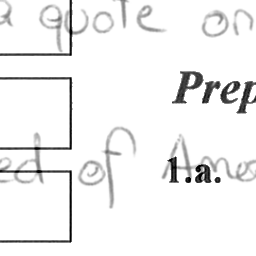 a quote on
Prep
ed of Ame
1.a.